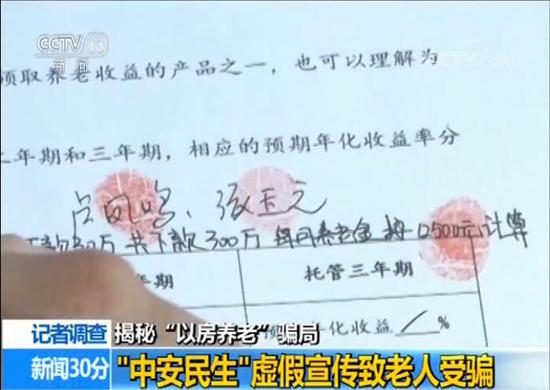 CCTV 13
新闻
CCTV.com
领取养老收益的产品之一，也可以理解为
二年期和三年期，相应的预期年化收益率分
共下款300万 每月养老金按 10500元计算
年期
托管三年期
年化收益 %
记者调查
揭秘“以房养老”骗局
新闻30分
"中安民生"虚假宣传致老人受骗